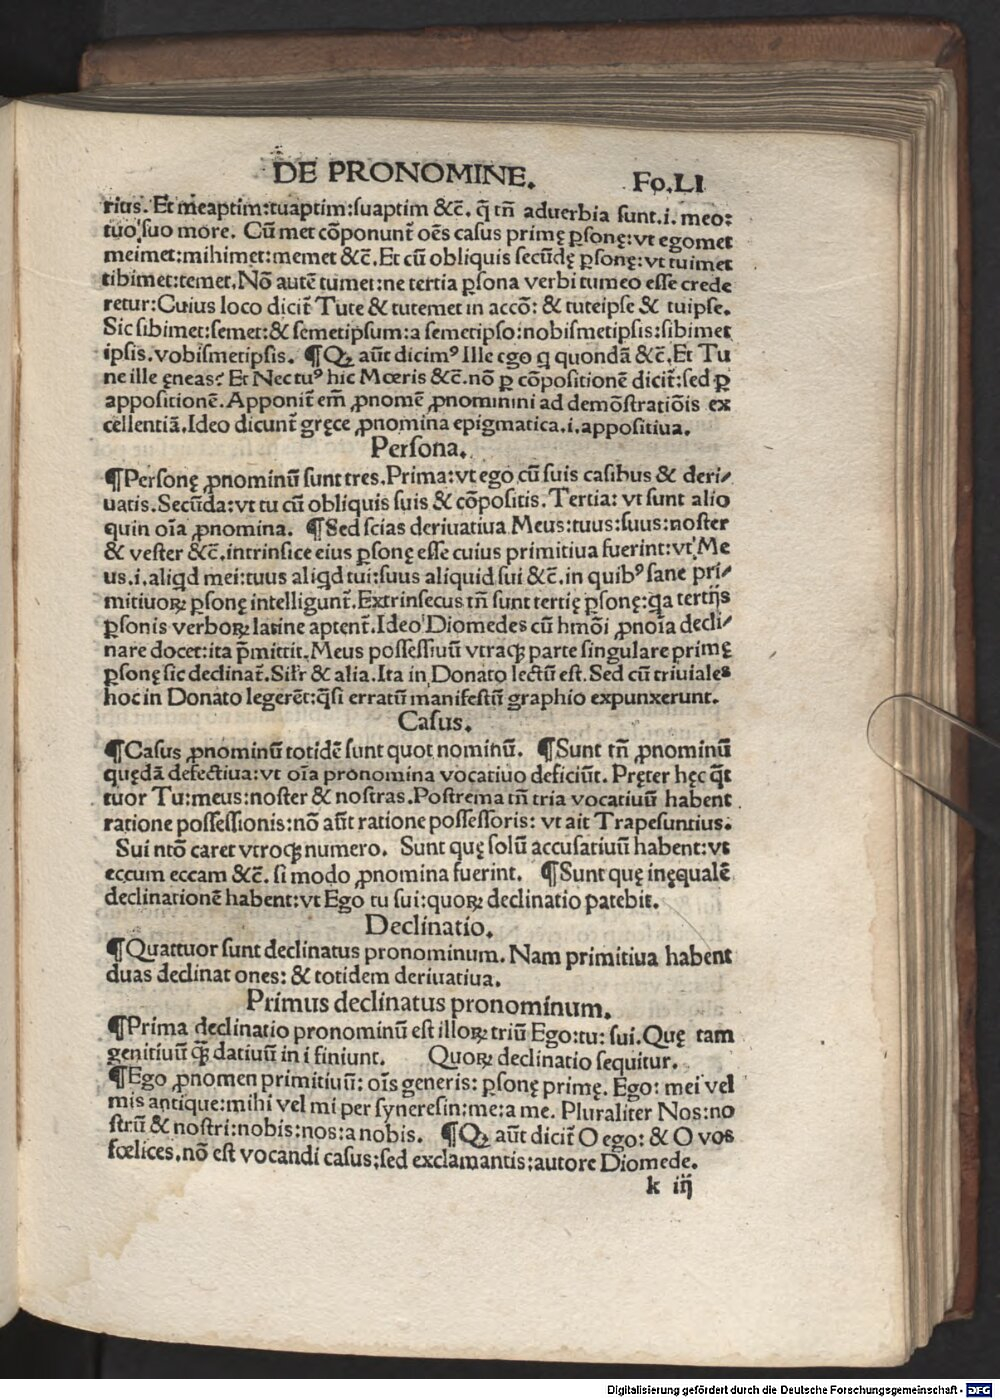 DE PRONOMINE. Fo.LI
rius. Et meaptim:tuaptim:suaptim &c̄. q̄ tñ aduerbia sunt.i. meo:
tuo:suo more. Cū met cōponunt̄ oēs casus primę ꝑsonę:vt egomet
meimet:mihimet:memet &c̄.Et cū obliquis secūdę ꝑsonę:vt tuimet
tibimet:temet.Nō autē tumet:ne tertia ꝑsona verbi tumeo esse crede
retur:Cuius loco dicit̄ Tute & tutemet in accō: & tuteipse & tuipse.
Sic sibimet:semet:& semetipsum:a semetipso:nobismetipsis:sibimet
ipsis.vobismetipsis. ¶Qꝫ aūt dicimꝰ Ille ego q quondā &c̄.Et Tu
ne ille ęneas? Et Nec tuꝰ hic Mœris &c̄.nō ꝑ cōpositionē dicit̄:sed ꝑ
appositionē.Apponit̄ em̄ ꝓnomē ꝓnomini ad demōstratiōis ex
cellentiā.Ideo dicunt̄ gręce ꝓnomina epigmatica.i.appositiua.
Persona.
¶Personę ꝓnominū sunt tres.Prima:vt ego cū suis casibus & deri/
uatis.Secūda:vt tu cū obliquis suis & cōpositis.Tertia: vt sunt alio
quin oīa ꝓnomina. ¶Sed scias deriuatiua Meus:tuus:suus:noster
& vester &c̄.intrinsice eius ꝑsonę esse cuius primitiua fuerint:vt Me
us.i.aliqd mei:tuus aliqd tui:suus aliquid sui &c̄.in quibꝰ sane pri/
mitiuoꝝ ꝑsonę intelligunt̄.Extrinsecus tñ sunt tertię ꝑsonę:qa tertijs
ꝑsonis verboꝝ latine aptent̄.Ideo Diomedes cū hmōi ꝓnoīa decli/
nare docet:ita p̄mittit.Meus possessiuū vtraqꝫ parte singulare primę
ꝑsonę sic declinat̄.Silr & alia.Ita in Donato lectū est.Sed cū triuiales
hoc in Donato legerēt:qsi erratū manifestū graphio expunxerunt.
Casus.
¶Casus ꝓnominū totidē sunt quot nominū. ¶Sunt tñ ꝓnominū
quędā defectiua:vt oīa pronomina vocatiuo deficiūt. Pręter hęc q̄t
tuor Tu:meus:noster & nostras.Postrema tñ tria vocatiuū habent
ratione possessionis:nō aūt ratione possessoris: vt ait Trapesuntius.
Sui ntō caret vtroqꝫ numero. Sunt quę solū accusatiuū habent:vt
eccum eccam &c̄. si modo ꝓnomina fuerint. ¶Sunt quę inęqualē
declinationē habent:vt Ego tu sui:quoꝝ declinatio patebit.
Declinatio.
¶Quattuor sunt declinatus pronominum. Nam primitiua habent
duas declinat ones: & totidem deriuatiua.
Primus declinatus pronominum.
¶Prima declinatio pronominū est illoꝝ triū Ego:tu: sui.Quę tam
genitiuū qꝫ̄ datiuū in i finiunt. Quoꝝ declinatio sequitur.
¶Ego ꝓnomen primitiuū: oīs generis: ꝑsonę primę. Ego: mei vel
mis antique:mihi vel mi per syneresin:me:a me. Pluraliter Nos:no
strū & nostri:nobis:nos:a nobis. ¶Qꝫ aūt dicit̄ O ego: & O vos
fœlices.nō est vocandi casus:sed exclamantis:autore Diomede.
k iij
Digitalisierung gefördert durch die Deutsche Forschungsgemeinschaft - DFG